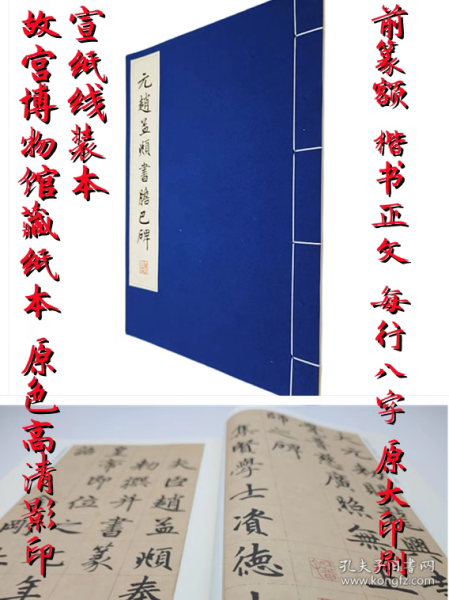 前篆额 楷书正文 每行八字 原大印刷
宣纸线装本
故宫博物馆藏纸本 原色高清影印
元趙孟頫書膽巴碑
廣照無
師之碑
集賢學士資德
夫臣趙孟頫奉
勅撰并書篆
皇帝即位之
孔夫子旧书网
www.kongfz.com